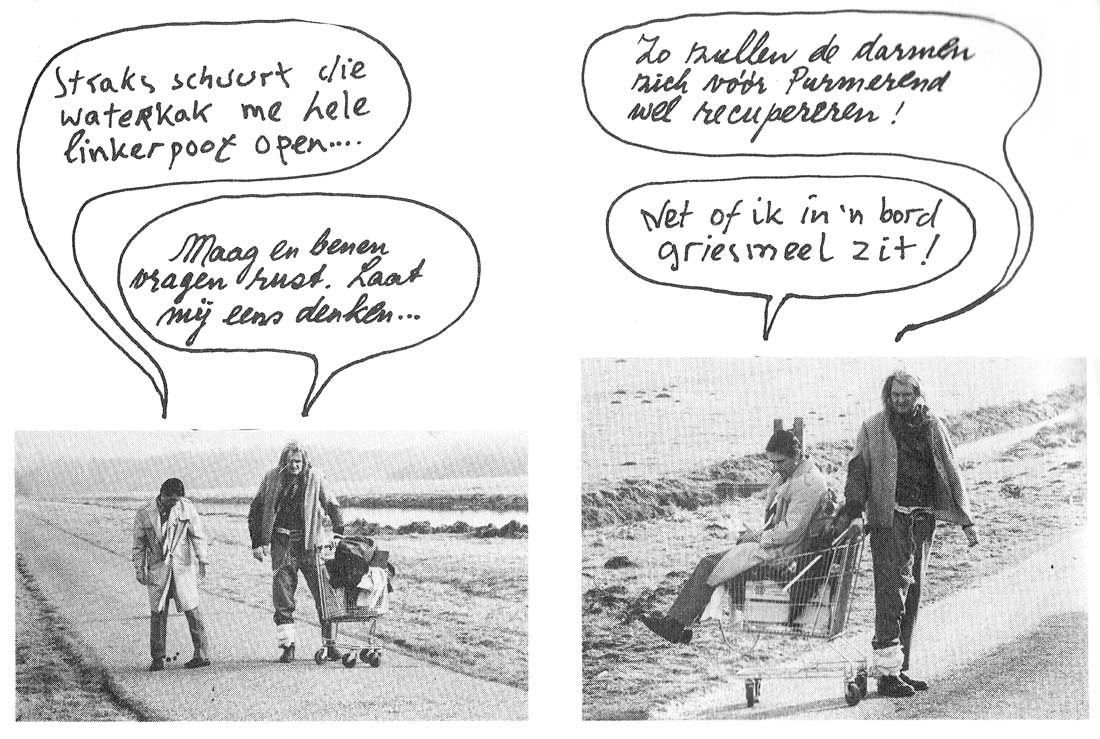 Straks schuurt die
waterkak me hele
linkerpoot open....
Maag en benen
vragen rust. Laat
mij eens denken...
Zo zullen de darmen
zich vóór Purmerend
wel recupereren!
Net of ik in 'n bord
griesmeel zit!